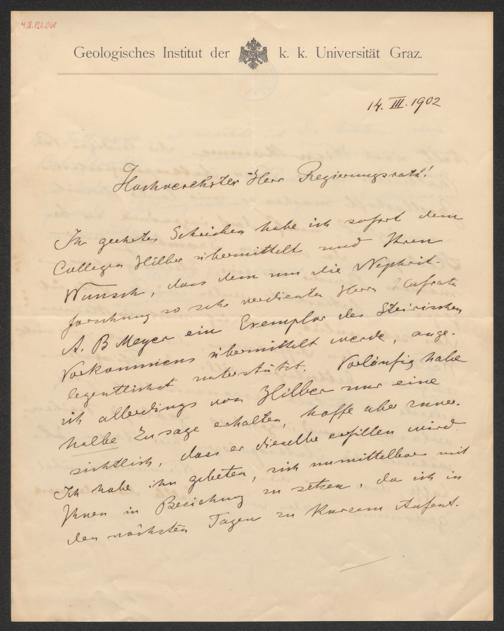 Geologisches Institut der k. k. Universität Graz.
14. III. 1902
Hochverehrter Herr Regierungsrath!
Ihr geehrtes Schreiben habe ich sofort dem
Collegen Hilber übermittelt und Ihren
Wunsch, dass dem um die Nephrit-
forschung so sehr verdienten Herrn Hofrath
A. B Meyer ein Exemplar des Steirischen
Vorkommens übermittelt werde, ange-
legentlichst unterstützt. Vorläufig habe
ich allerdings von Hilber nur eine
halbe Zusage erhalten, hoffe aber zuver-
sichtlich, dass er dieselbe erfüllen wird
Ich habe ihn gebeten, sich unmittelbar mit
Ihnen in Beziehung zu setzen, da ich in
den nächsten Tagen zu kurzem Aufent-